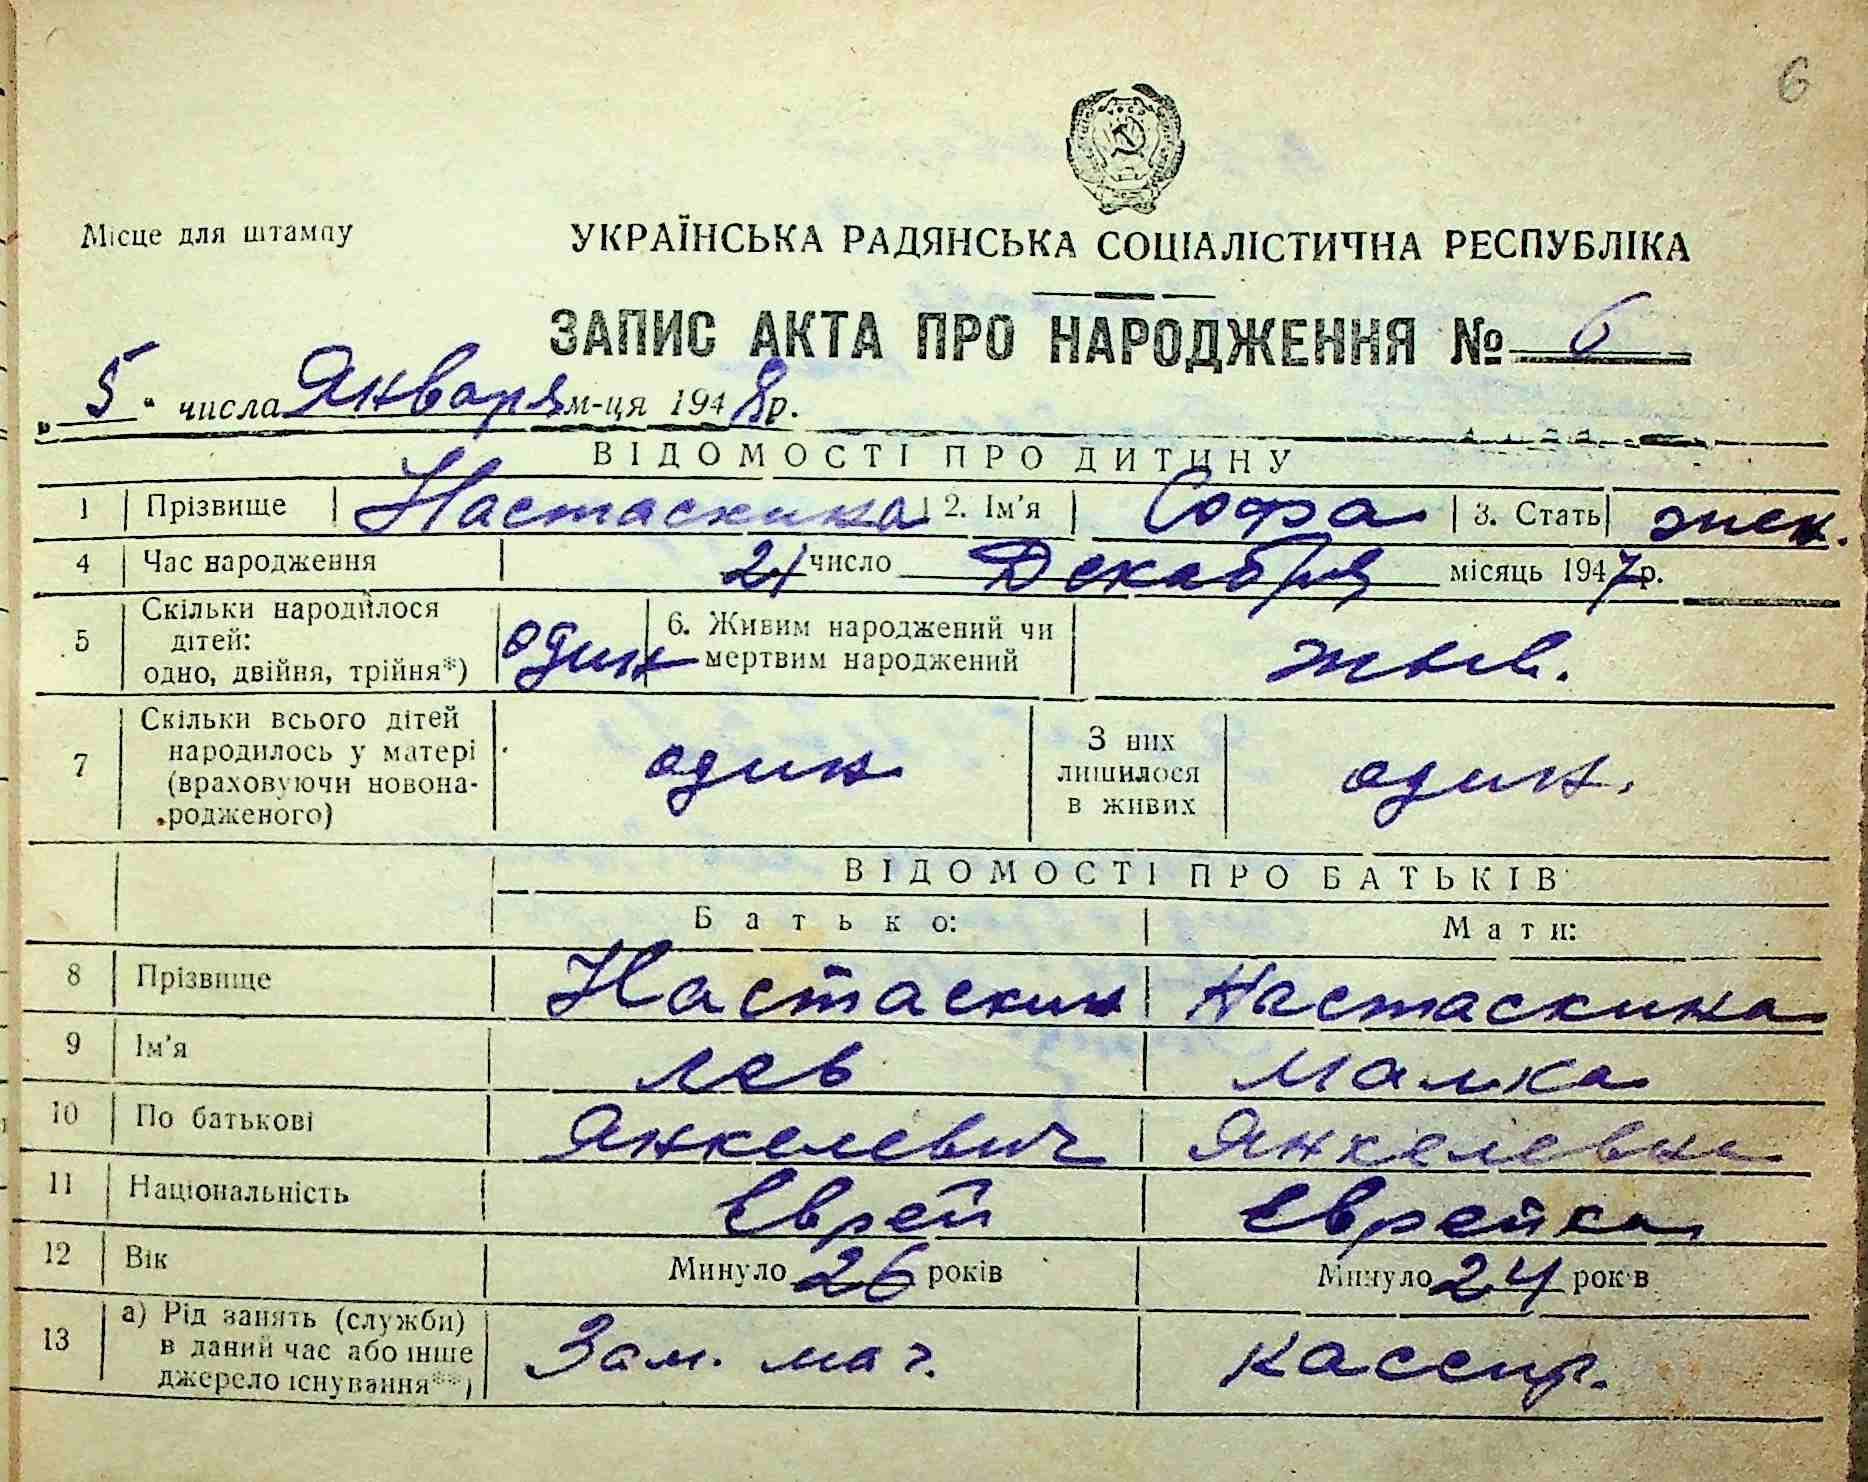 6
Місце для штампу
УКРАЇНСЬКА РАДЯНСЬКА СОЦІАЛІСТИЧНА РЕСПУБЛІКА
ЗАПИС АКТА ПРО НАРОДЖЕННЯ № 6
„5“ числа Января м-ця 1948р.
ВІДОМОСТІ ПРО ДИТИНУ
1 Прізвище Настаскина 2. Ім'я Софа 3. Стать жен.
4 Час народження 21 число Декабря місяць 1947р.
5 Скільки народилося дітей: одно, двійня, трійня*) один 6. Живим народжений чи мертвим народжений жив.
7 Скільки всього дітей народилось у матері (враховуючи новонародженого) один З них лишилося в живих один.
ВІДОМОСТІ ПРО БАТЬКІВ
Батько: Мати:
8 Прізвище Настаскин Настаскина
9 Ім'я Лев Малка
10 По батькові Янкелевич Янкелевна
11 Національність Еврей Еврейка
12 Вік Минуло 26 років Минуло 24 років
13 а) Рід занять (служби) в даний час або інше джерело існування**) Зам. нач. кассир.